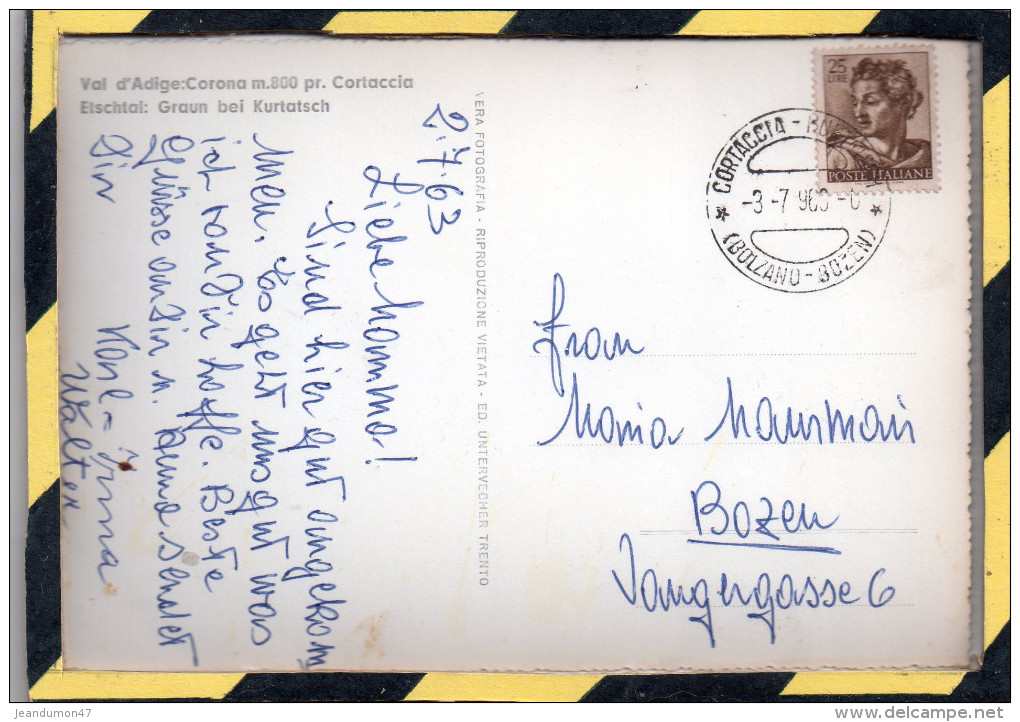 Val d'Adige:Corona m.800 pr. Cortaccia
Etschtal: Graun bei Kurtatsch
2.7.63
Liebe Mamma!
Sind hier gut angekom
men. Es geht uns gut was
ich von Dir hoffe. Beste
Grüsse an Dir u. Anna sendet
Dir
Karl = Irma
Walter
VERA FOTOGRAFIA - RIPRODUZIONE VIETATA - ED. UNTERVECHER TRENTO
25
LIRE
POSTE ITALIANE
CORTACCIA - BO
-3 -7 963 -
(BOLZANO - BOZEN)
Frau
Maria Mausmair
Bozen
Vangergasse 6
jeandumon47
www.delcampe.net